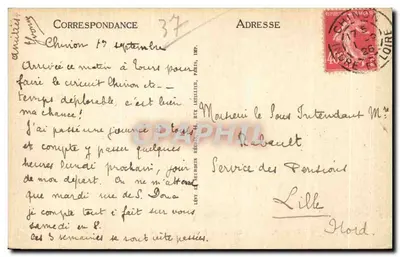 CORRESPONDANCE
ADRESSE
37
amitiés
Chinon 17 septembre
Arrivée ce matin à Tours pour
faire le circuit Chinon etc
Temps déplorable, c'est bien
ma chance !
J'ai passé une journée à
et compte y passer quelques
heures lundi prochain, jour
de mon départ. On ne m'attend
que mardi rue de S.
je compte tout à fait sur vous
samedi en 8.
Ces 3 semaines se sont vite passées.
Monsieur le Sous Intendant Mre
Service des Pensions
Lille
Nord.
CHINON
LOIRE